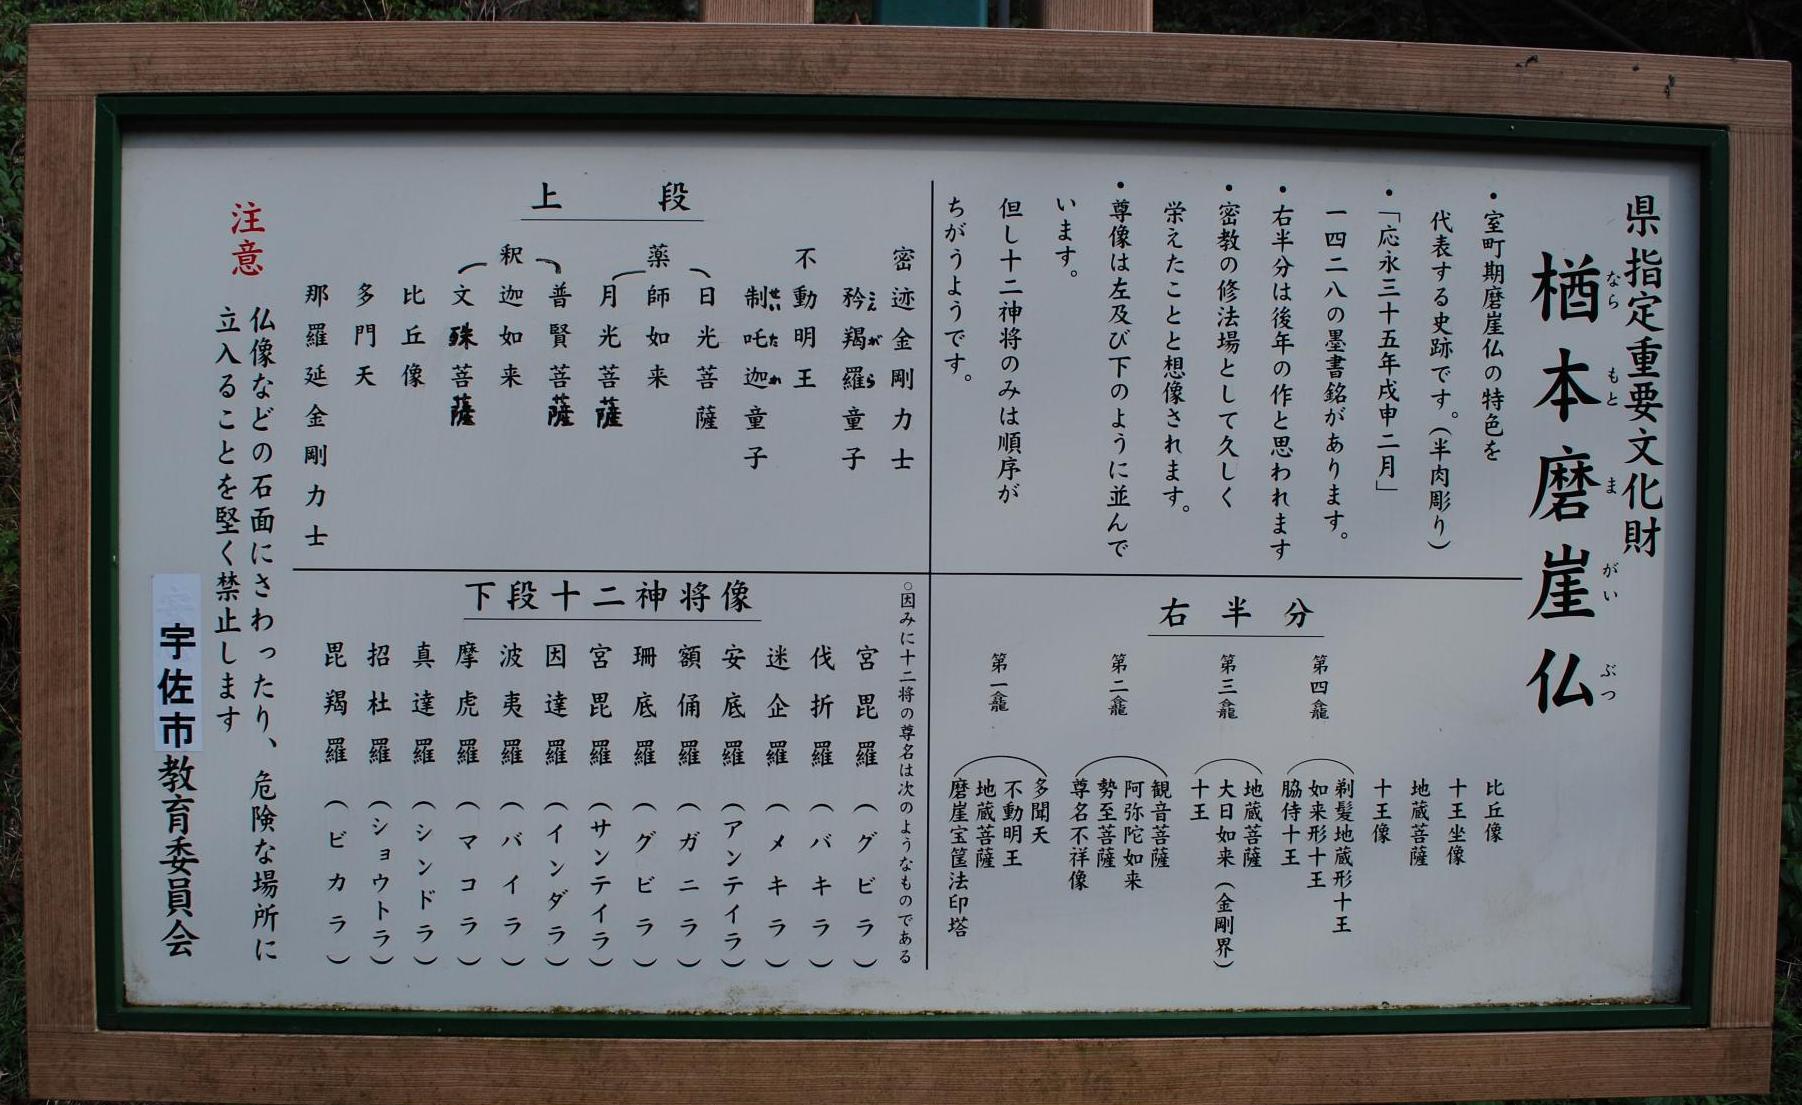 県指定重要文化財
楢本磨崖仏
なら もと ま がい ぶつ
・室町期磨崖仏の特色を
代表する史跡です。(半肉彫り)
・「応永三十五年戌申二月」
一四二八の墨書銘があります。
・右半分は後年の作と思われます
・密教の修法場として久しく
栄えたことと想像されます。
・尊像は左及び下のように並んで
います。
但し十二神将のみは順序が
ちがうようです。
右半分
比丘像
十王坐像
地蔵菩薩
十王像
第四龕
剃髪地蔵形十王
如来形十王
脇侍十王
第三龕
地蔵菩薩
大日如来(金剛界)
十王
第二龕
観音菩薩
阿弥陀如来
勢至菩薩
尊名不祥像
第一龕
多聞天
不動明王
地蔵菩薩
磨崖宝筐法印塔
上段
密迹金剛力士
矜羯羅童子
こんがら
不動明王
制吒迦童子
せいたか
日光菩薩
薬師如来
月光菩薩
普賢菩薩
釈迦如来
文殊菩薩
比丘像
多門天
那羅延金剛力士
○因みに十二将の尊名は次のようなものである
下段十二神将像
宮毘羅(グビラ)
伐折羅(バキラ)
迷企羅(メキラ)
安底羅(アンテイラ)
額俑羅(ガニラ)
珊底羅(グビラ)
宮毘羅(サンテイラ)
因達羅(インダラ)
波夷羅(バイラ)
摩虎羅(マコラ)
真達羅(シンドラ)
招杜羅(ショウトラ)
毘羯羅(ビカラ)
注意
仏像などの石面にさわったり、危険な場所に
立入ることを堅く禁止します
宇佐市教育委員会